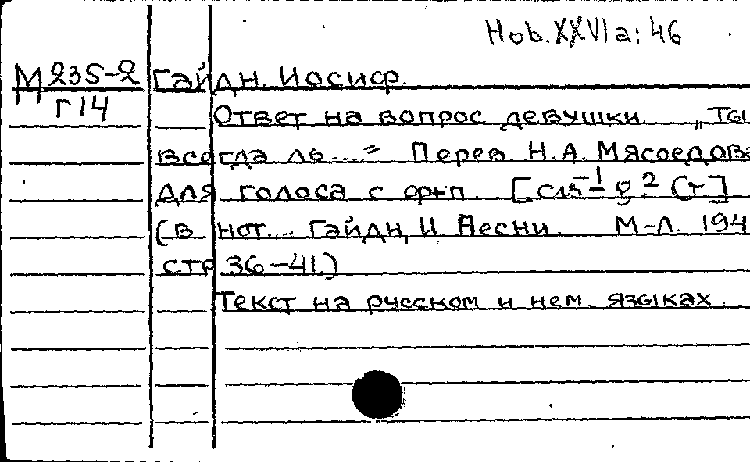 Hob. XXVIa: 46
М 235-2 Гайдн. Иосиф.
Г14
Ответ на вопрос девушки „Ты
всегда ль..." Перев. Н.А. Мясоедова
для голоса с ф-п.
(в нот. Гайдн, И. Песни. М-Л. 194
стр 36-41.)
Текст на русском и нем. языках.